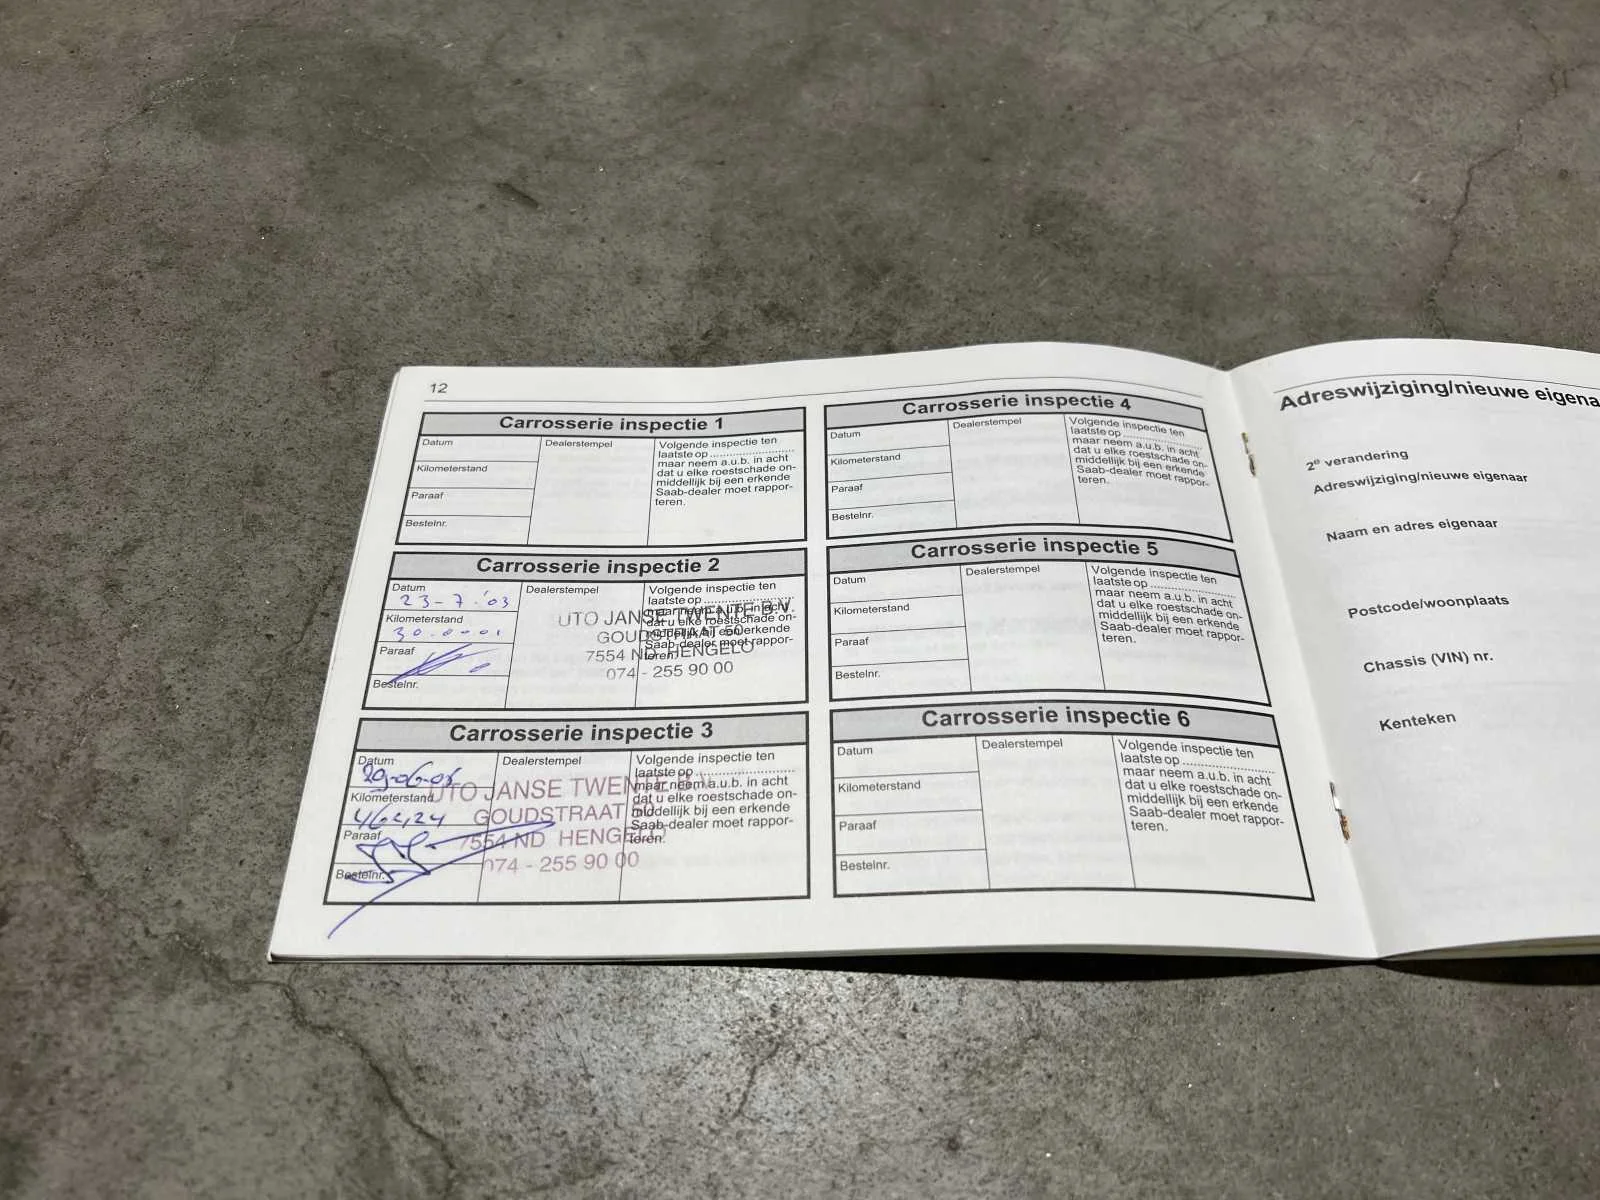 12
Carrosserie inspectie 1
Datum
Kilometerstand
Paraaf
Bestelnr.
Dealerstempel
Volgende inspectie ten
laatste op
maar neem a.u.b. in acht
dat u elke roestschade on-
middellijk bij een erkende
Saab-dealer moet rappor-
teren.
Carrosserie inspectie 2
Datum
23-7-'03
Kilometerstand
Paraaf
Bestelnr.
Dealerstempel
UTO JANSE TWENTE B.V.
GOUDSTRAAT 50
7554 ND HENGELO
074 - 255 90 00
Volgende inspectie ten
laatste op
maar neem a.u.b. in acht
dat u elke roestschade on-
middellijk bij een erkende
Saab-dealer moet rappor-
teren.
Carrosserie inspectie 3
Datum
Kilometerstand
Paraaf
Bestelnr.
Dealerstempel
UTO JANSE TWENTE B.V.
GOUDSTRAAT 50
7554 ND HENGELO
074 - 255 90 00
Volgende inspectie ten
laatste op
maar neem a.u.b. in acht
dat u elke roestschade on-
middellijk bij een erkende
Saab-dealer moet rappor-
teren.
Carrosserie inspectie 4
Datum
Kilometerstand
Paraaf
Bestelnr.
Dealerstempel
Volgende inspectie ten
laatste op
maar neem a.u.b. in acht
dat u elke roestschade on-
middellijk bij een erkende
Saab-dealer moet rappor-
teren.
Carrosserie inspectie 5
Datum
Kilometerstand
Paraaf
Bestelnr.
Dealerstempel
Volgende inspectie ten
laatste op
maar neem a.u.b. in acht
dat u elke roestschade on-
middellijk bij een erkende
Saab-dealer moet rappor-
teren.
Carrosserie inspectie 6
Datum
Kilometerstand
Paraaf
Bestelnr.
Dealerstempel
Volgende inspectie ten
laatste op
maar neem a.u.b. in acht
dat u elke roestschade on-
middellijk bij een erkende
Saab-dealer moet rappor-
teren.
Adreswijziging/nieuwe eigena
2e verandering
Adreswijziging/nieuwe eigenaar
Naam en adres eigenaar
Postcode/woonplaats
Chassis (VIN) nr.
Kenteken